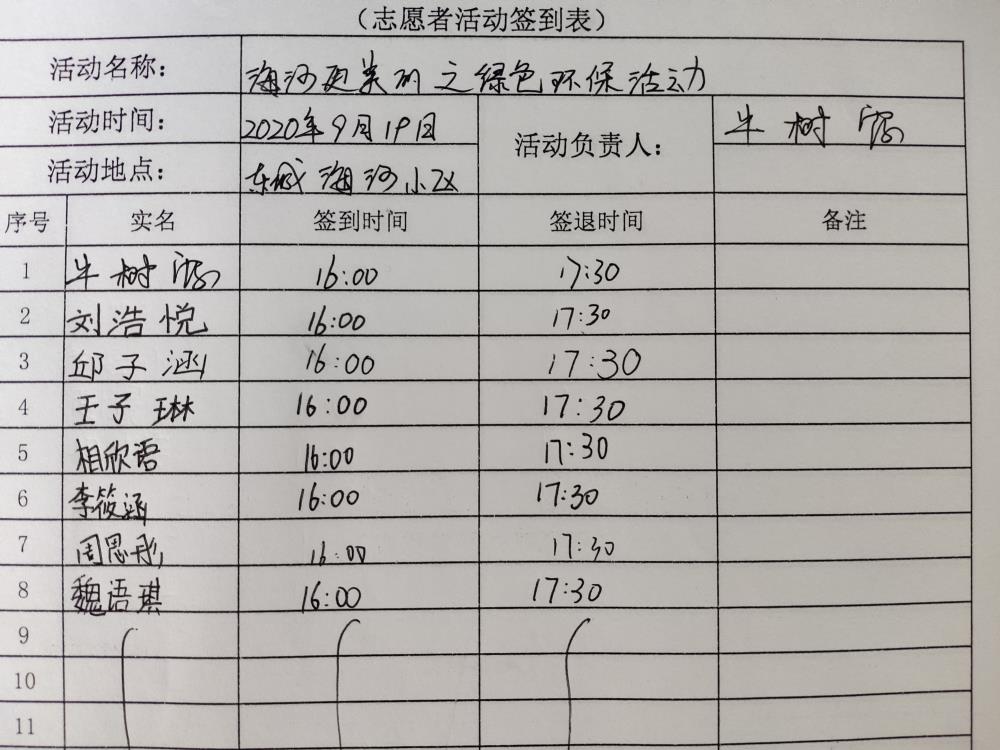 （志愿者活动签到表）
活动名称： 海河更美 之绿色环保活动
活动时间： 2020年9月19日 活动负责人： 牛树
活动地点： 东城海河小区
序号 实名 签到时间 签退时间 备注
1 牛树 16:00 17:30
2 刘浩悦 16:00 17:30
3 邱子涵 16:00 17:30
4 王子琳 16:00 17:30
5 相欣语 16:00 17:30
6 李筱涵 16:00 17:30
7 周思彤 16:00 17:30
8 魏语琪 16:00 17:30
9
10
11